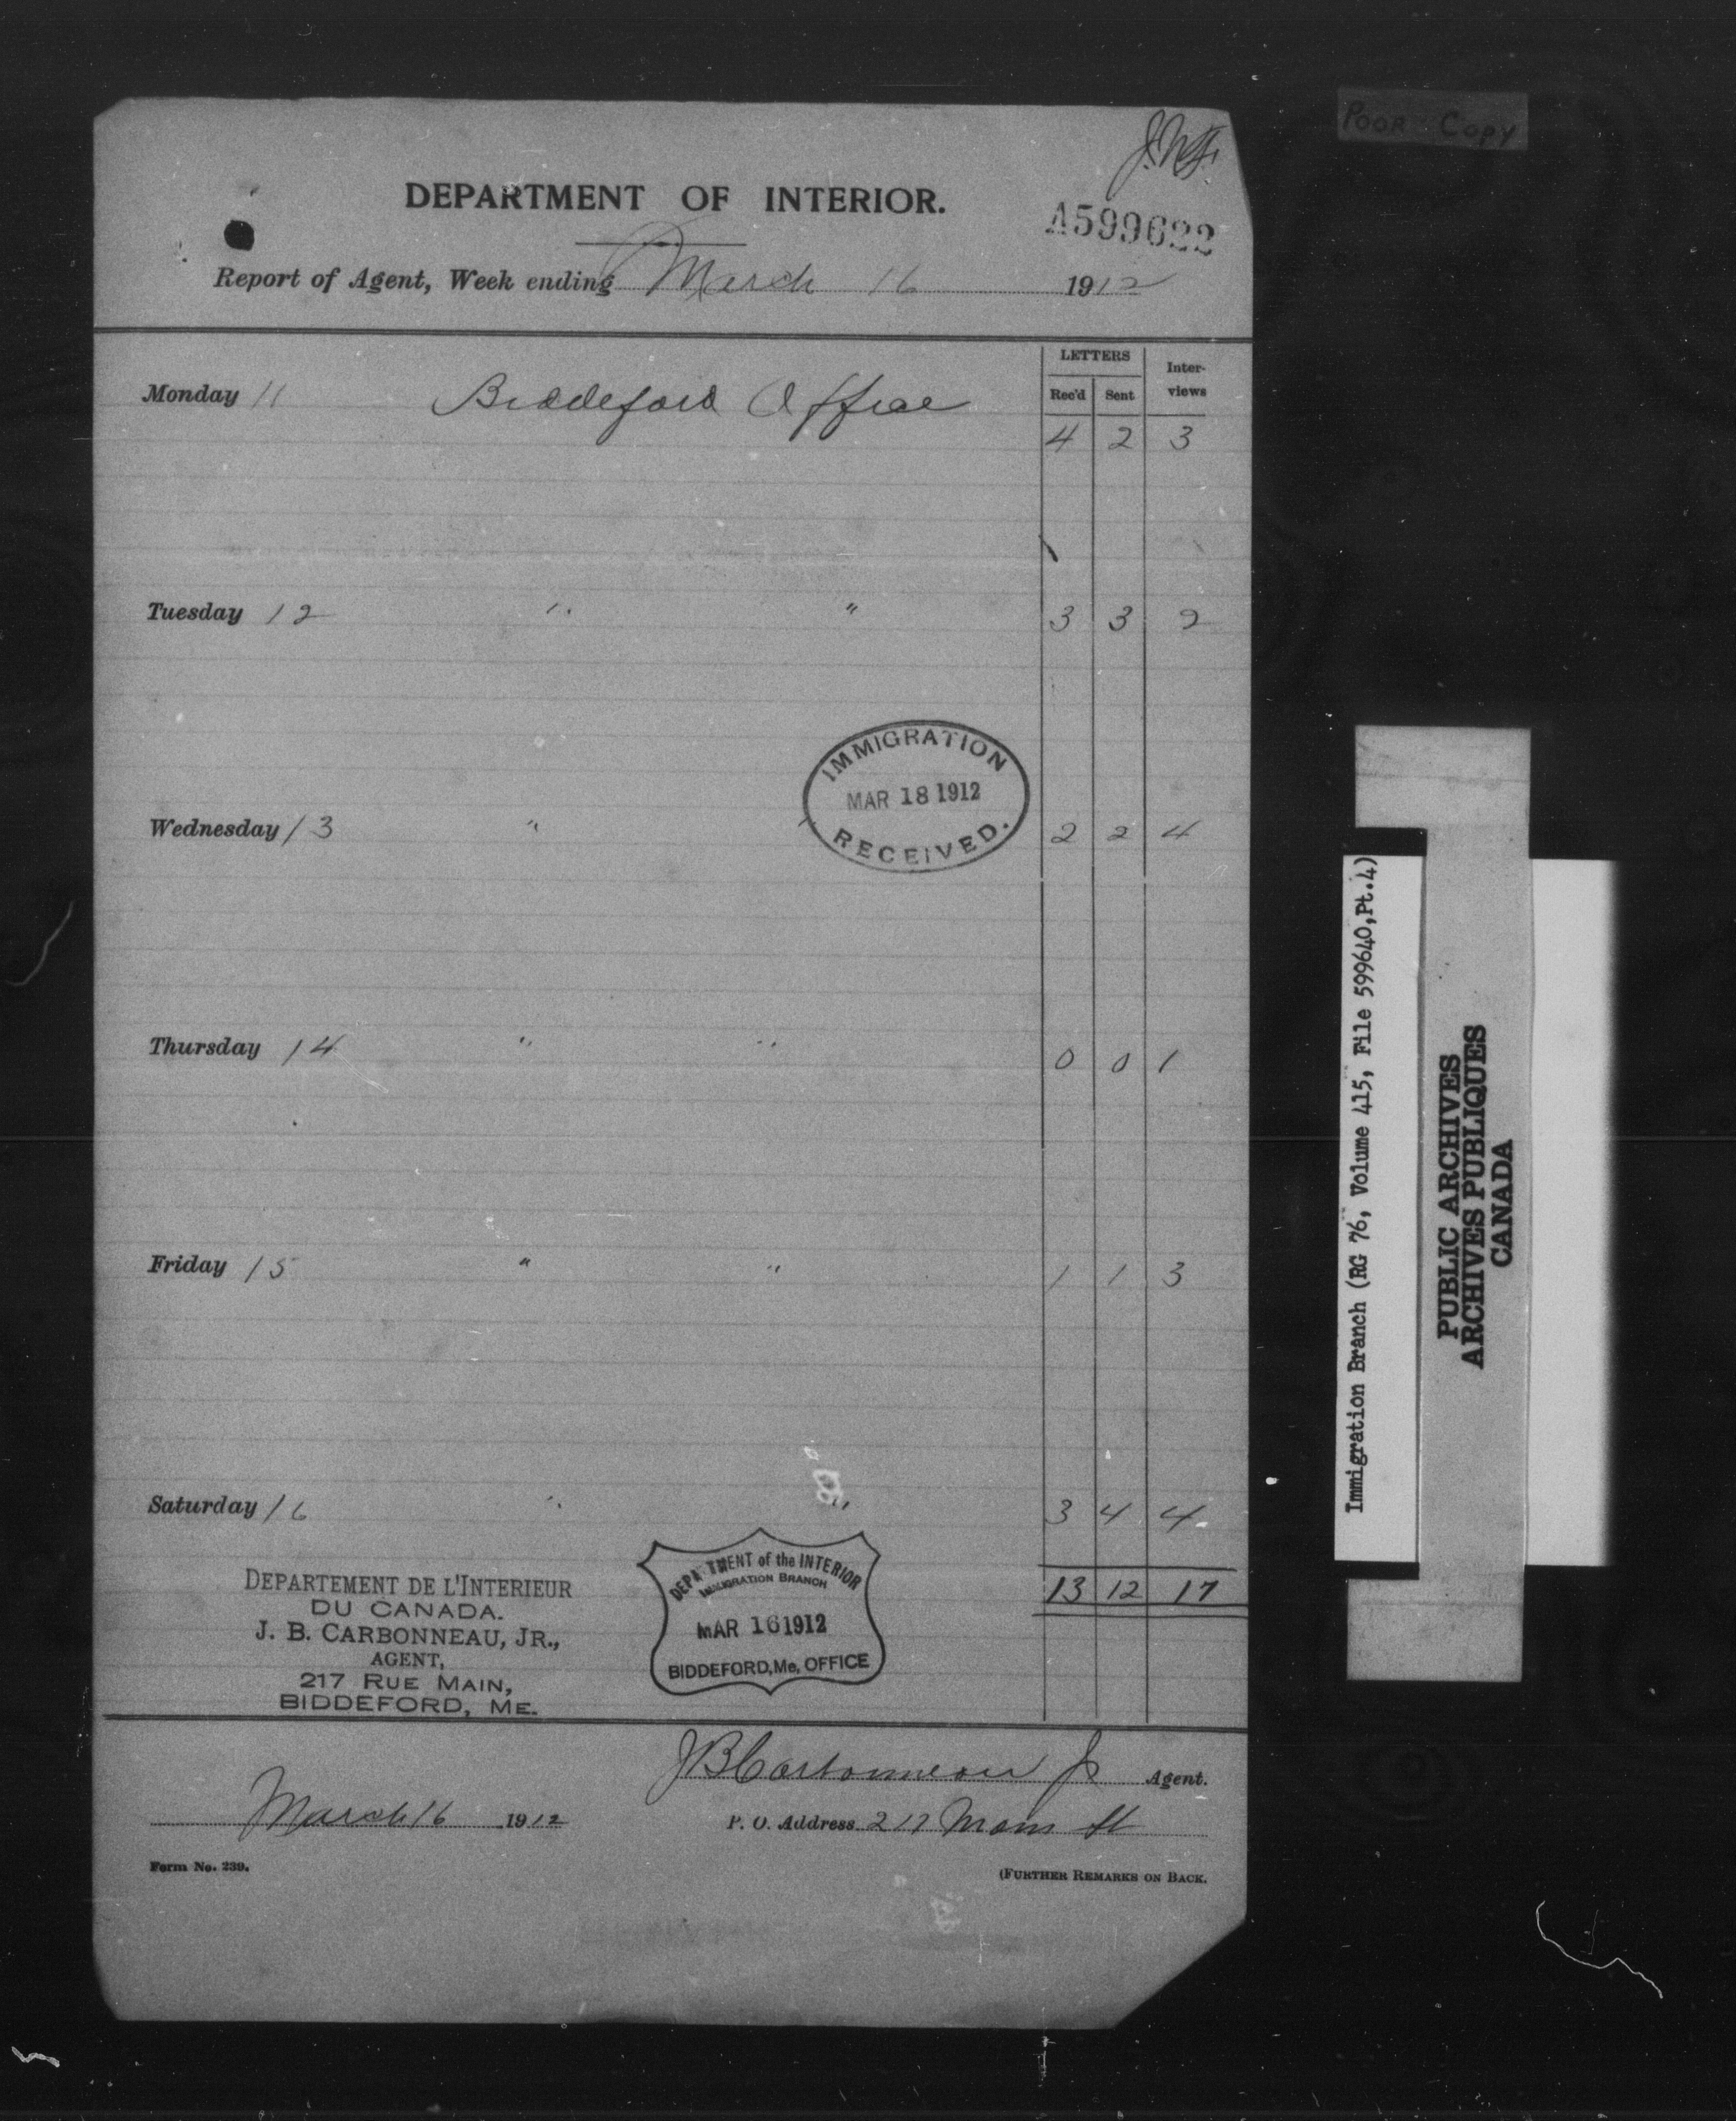 POOR COPY
DEPARTMENT OF INTERIOR.
A599622
Report of Agent, Week ending March 16 1912
LETTERS Inter-views
Rec'd Sent
Monday 11 Biddeford Office
4 2 3
Tuesday 12 " " 3 3 2
IMMIGRATION
MAR 18 1912
RECEIVED.
Wednesday 13 " " 2 2 4
Thursday 14 " " 0 0 1
Friday 15 " " 1 1 3
Saturday 16 " " 3 4 4
13 12 17
DEPARTEMENT DE L'INTERIEUR
DU CANADA.
J. B. CARBONNEAU, JR.,
AGENT,
217 RUE MAIN,
BIDDEFORD, ME.
DEPARTMENT of the INTERIOR
IMMIGRATION BRANCH
MAR 16 1912
BIDDEFORD, Me, OFFICE
JBCarbonneau Jr Agent.
March 16 1912 P. O. Address 217 Main St
Form No. 239. (FURTHER REMARKS ON BACK.
Immigration Branch (RG 76, Volume 415, File 599640, Pt.4)
PUBLIC ARCHIVES
ARCHIVES PUBLIQUES
CANADA